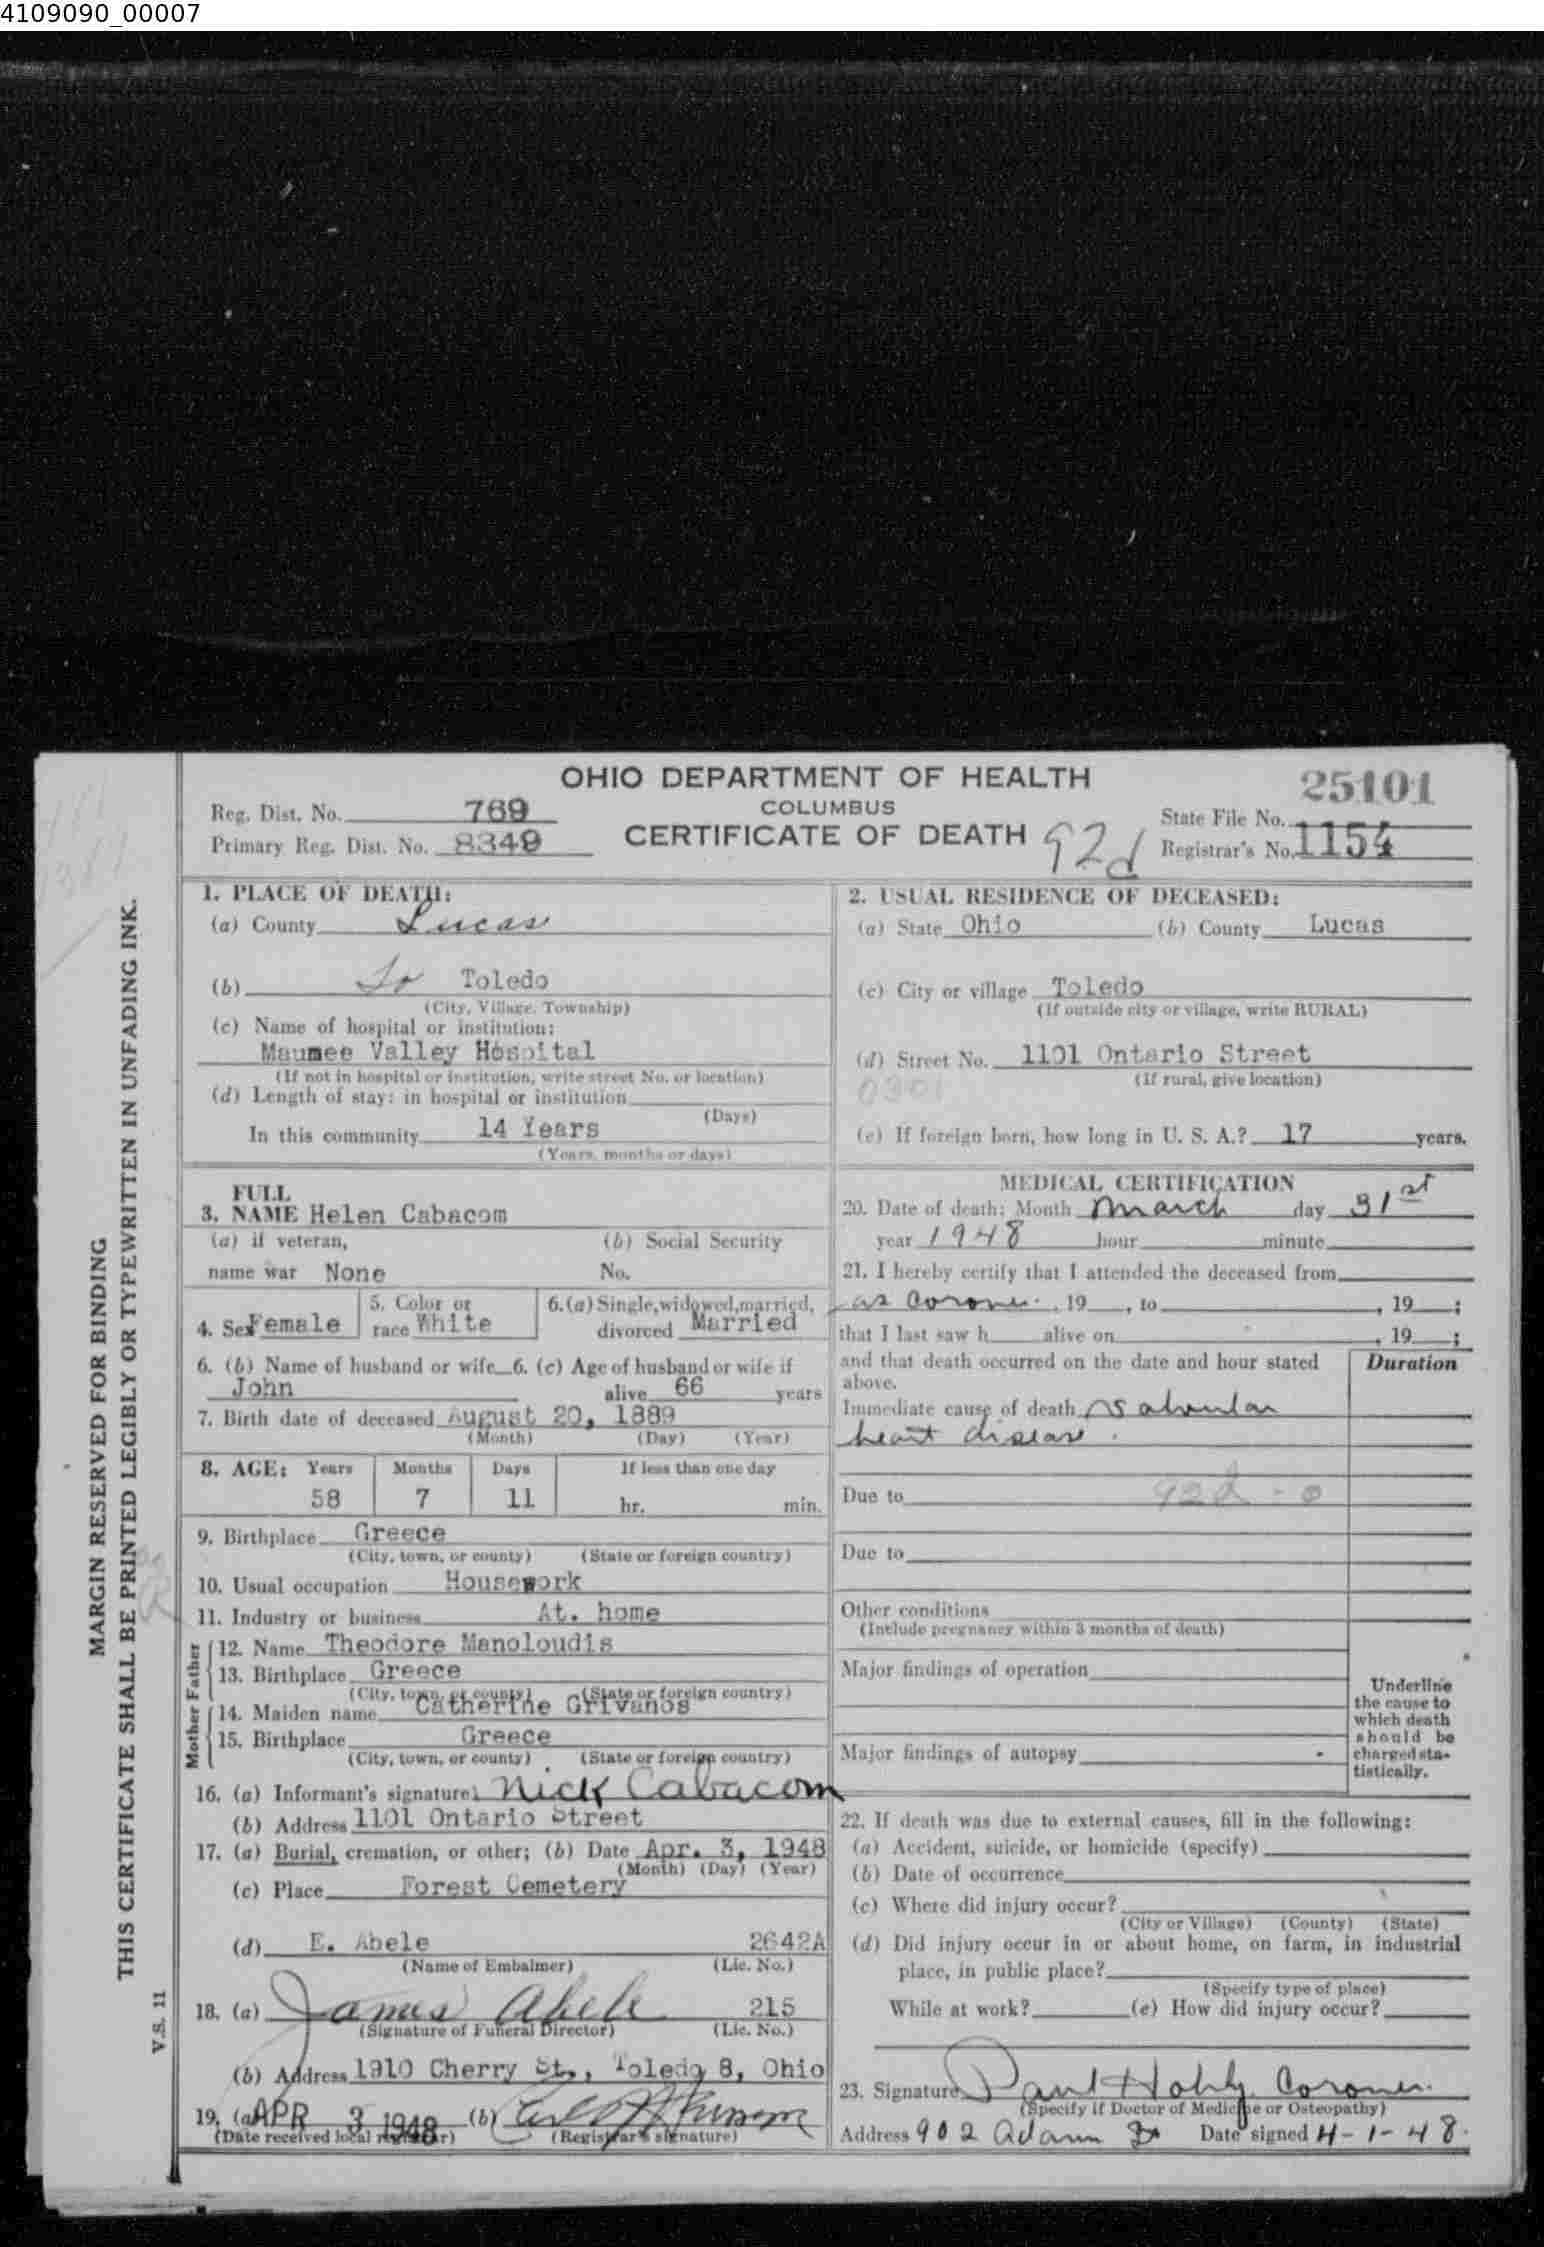 4109090_00007
OHIO DEPARTMENT OF HEALTH
COLUMBUS
CERTIFICATE OF DEATH
92d
25101
Reg. Dist. No. 769
Primary Reg. Dist. No. 8349
State File No.
Registrar's No. 1154
MARGIN RESERVED FOR BINDING
THIS CERTIFICATE SHALL BE PRINTED LEGIBLY OR TYPEWRITTEN IN UNFADING INK.
V.S. 11
1. PLACE OF DEATH:
(a) County Lucas
(b) Toledo
(City, Village, Township)
(c) Name of hospital or institution:
Maumee Valley Hospital
(If not in hospital or institution, write street No. or location)
(d) Length of stay: in hospital or institution
(Days)
In this community 14 Years
(Years, months or days)
2. USUAL RESIDENCE OF DECEASED:
(a) State Ohio (b) County Lucas
(c) City or village Toledo
(If outside city or village, write RURAL)
(d) Street No. 1101 Ontario Street
0301 (If rural, give location)
(e) If foreign born, how long in U. S. A.? 17 years.
FULL
3. NAME Helen Cabacom
(a) if veteran, (b) Social Security
name war None No.
4. Sex Female 5. Color or race White 6. (a) Single, widowed, married, divorced Married
6. (b) Name of husband or wife 6. (c) Age of husband or wife if
John alive 66 years
7. Birth date of deceased August 20, 1889
(Month) (Day) (Year)
8. AGE: Years Months Days If less than one day
58 7 11 hr. min.
9. Birthplace Greece
(City, town, or county) (State or foreign country)
10. Usual occupation Housework
11. Industry or business At. home
Mother Father
12. Name Theodore Manoloudis
13. Birthplace Greece
(City, town, or county) (State or foreign country)
14. Maiden name Catherine Grivanos
15. Birthplace Greece
(City, town, or county) (State or foreign country)
16. (a) Informant's signature Nick Cabacom
(b) Address 1101 Ontario Street
17. (a) Burial, cremation, or other; (b) Date Apr. 3, 1948
(Month) (Day) (Year)
(c) Place Forest Cemetery
(d) E. Abele 2642A
(Name of Embalmer) (Lic. No.)
18. (a) James Abele 215
(Signature of Funeral Director) (Lic. No.)
(b) Address 1910 Cherry St., Toledo 8, Ohio
19. (a) APR 3 1948 (b)
(Date received local registrar) (Registrar's signature)
MEDICAL CERTIFICATION
20. Date of death: Month March day 31st
year 1948 hour minute
21. I hereby certify that I attended the deceased from
as Coroner. , 19 , to , 19 ;
that I last saw h alive on , 19 ;
and that death occurred on the date and hour stated
above.
Duration
Immediate cause of death Valvular
heart disease.
Due to 92d - 0
Due to
Other conditions
(Include pregnancy within 3 months of death)
Major findings of operation
Major findings of autopsy
Underline
the cause to
which death
should be
charged sta-
tistically.
22. If death was due to external causes, fill in the following:
(a) Accident, suicide, or homicide (specify)
(b) Date of occurrence
(c) Where did injury occur?
(City or Village) (County) (State)
(d) Did injury occur in or about home, on farm, in industrial
place, in public place?
(Specify type of place)
While at work? (e) How did injury occur?
23. Signature Paul Hohly. Coroner.
(Specify if Doctor of Medicine or Osteopathy)
Address 902 Adams St Date signed 4-1-48.